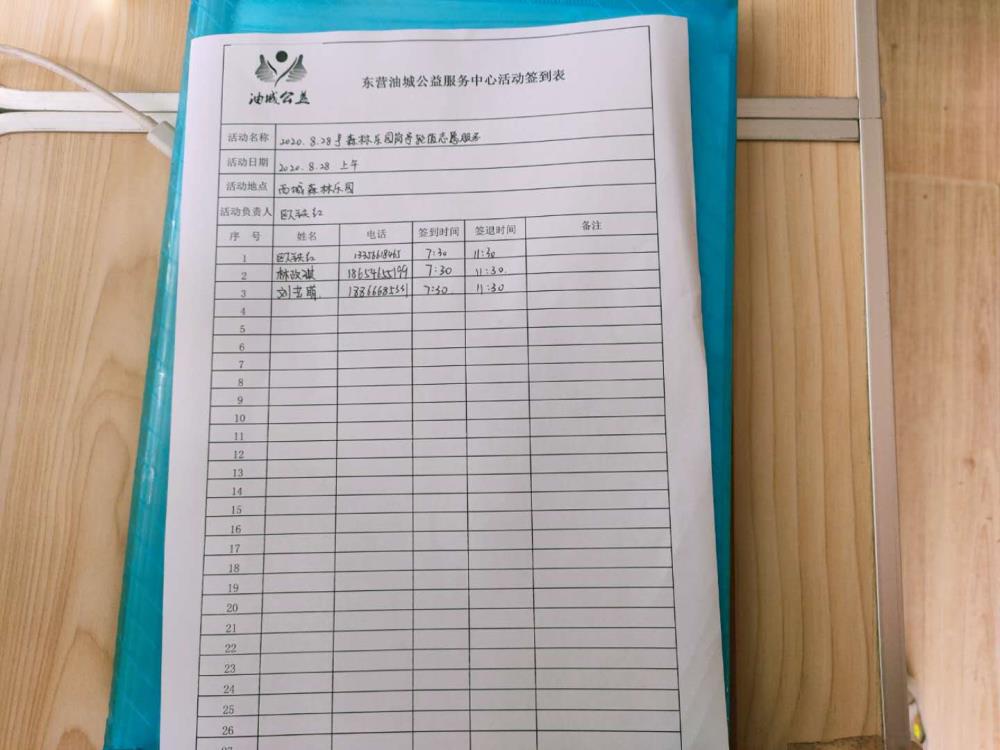 油城公益
东营油城公益服务中心活动签到表
活动名称 2020.8.28号森林乐园岗亭轮值志愿服务
活动日期 2020.8.28 上午
活动地点 西城森林乐园
活动负责人
序 号 姓名 电话 签到时间 签退时间 备注
1 7:30 11:30
2 林政祺 18654655199 7:30 11:30.
3 7:30 11:30
4
5
6
7
8
9
10
11
12
13
14
15
16
17
18
19
20
21
22
23
24
25
26